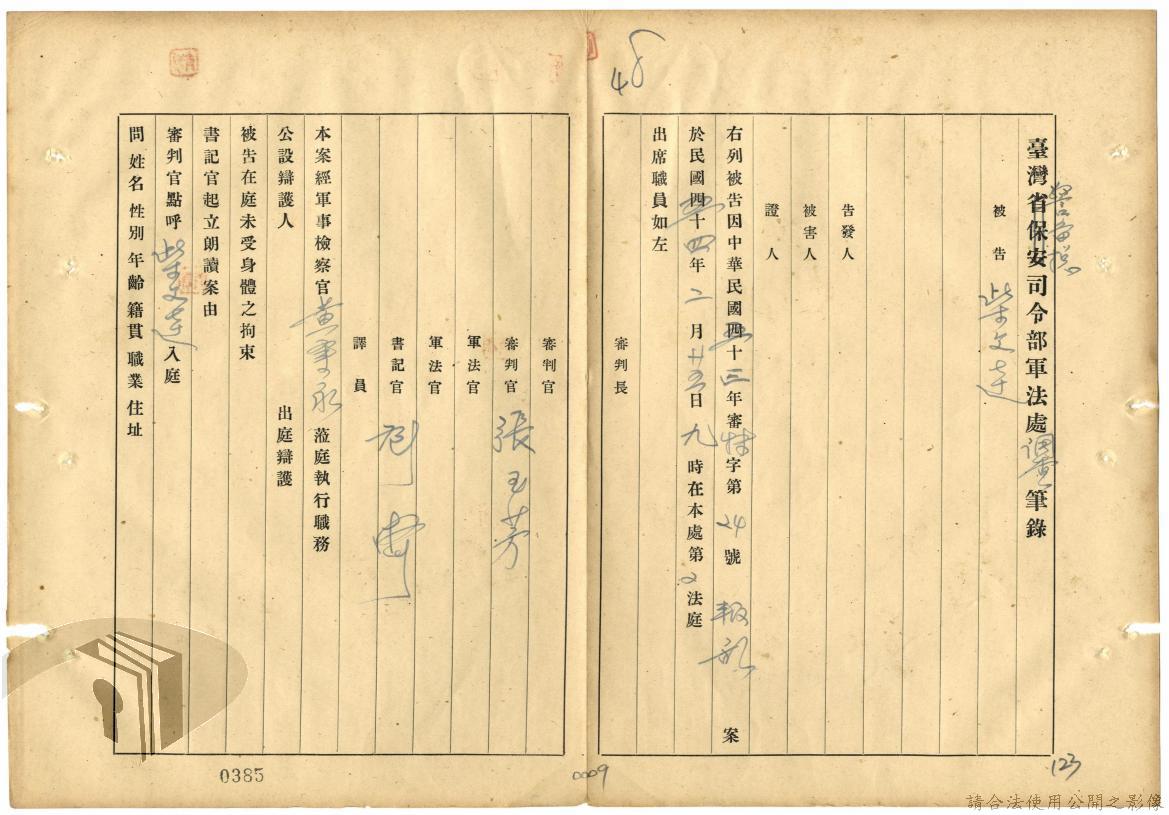 48
臺灣省保安司令部軍法處調查筆錄
被告 柴文達
告發人
被害人
證人
右列被告因中華民國四十三年審特字第24號叛亂案
於民國四十四年二月廿五日九時在本處第2法庭
出席職員如左
審判長
審判官
審判官 張玉芳
軍法官
軍法官
書記官
譯員
本案經軍事檢察官黃 蒞庭執行職務
公設辯護人 出庭辯護
被告在庭未受身體之拘束
書記官起立朗讀案由
審判官點呼柴文達入庭
問 姓名 性別 年齡 籍貫 職業 住址
0385
0009
123
請合法使用公開之影像